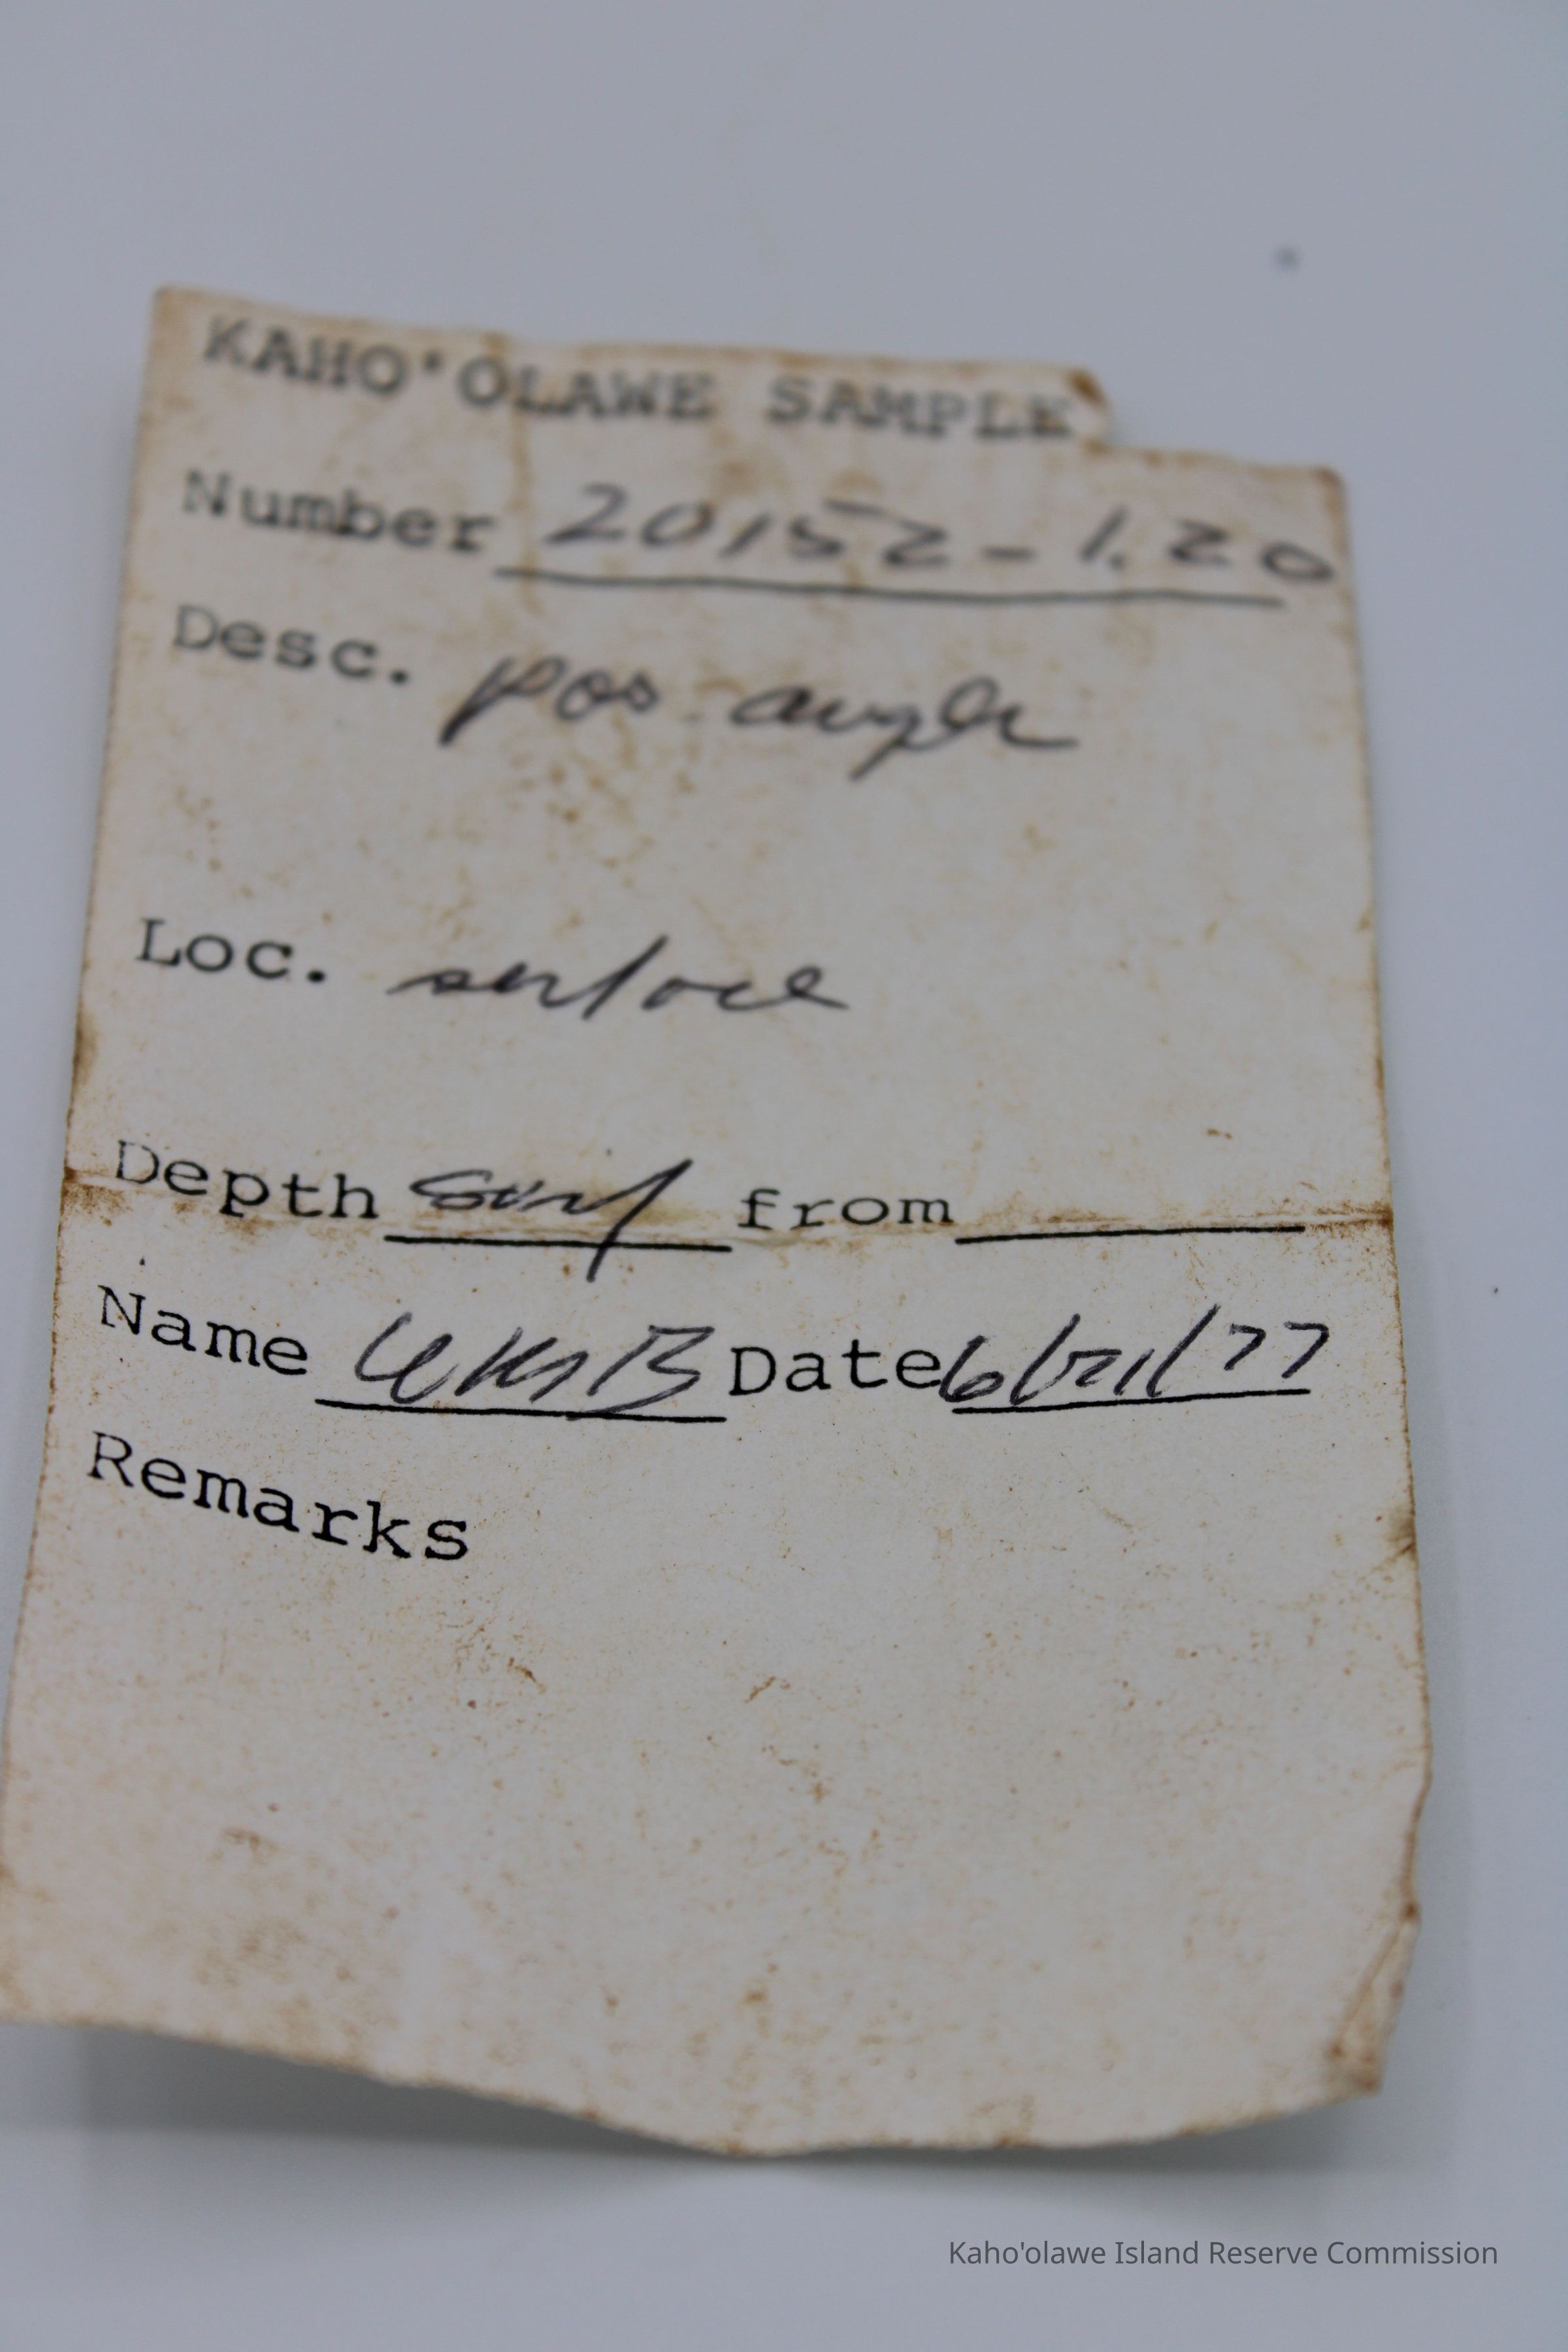 KAHO'OLAWE SAMPLE
Number 20152-1.20
Desc. pos
Loc. surface
Depth surf from
Name Date 6/21/77
Remarks
Kaho'olawe Island Reserve Commission